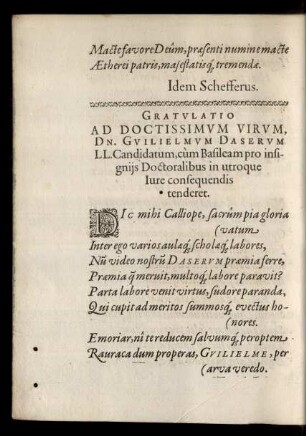 Macte favore Deûm, præsenti numine macte
Ætherei patris, majestatisq́; tremendæ.
Idem Schefferus.
GRATVLATIO
AD DOCTISSIMVM VIRVM,
DN. GVILIELMVM DASERVM
LL. Candidatum, cùm Basileam pro insi-
gnijs Doctoralibus in utroque
Iure consequendis
tenderet.
DIc mihi Calliope, sacrûm pia gloria
(vatum
Inter ego varios aulæq́; scholæq́; labores,
Nũ video nostrũ DASERVM præmia ferre,
Præmia q̃ meruit, multoq́; labore paravit?
Parta labore venit virtus, sudore paranda,
Qui cupit ad meritos summosq́; evectus ho-
(nores.
Emoriar, ni te reducem salvumq́; peroptem
Rauraca dum properas, GVILIELME, per
(arva veredo.